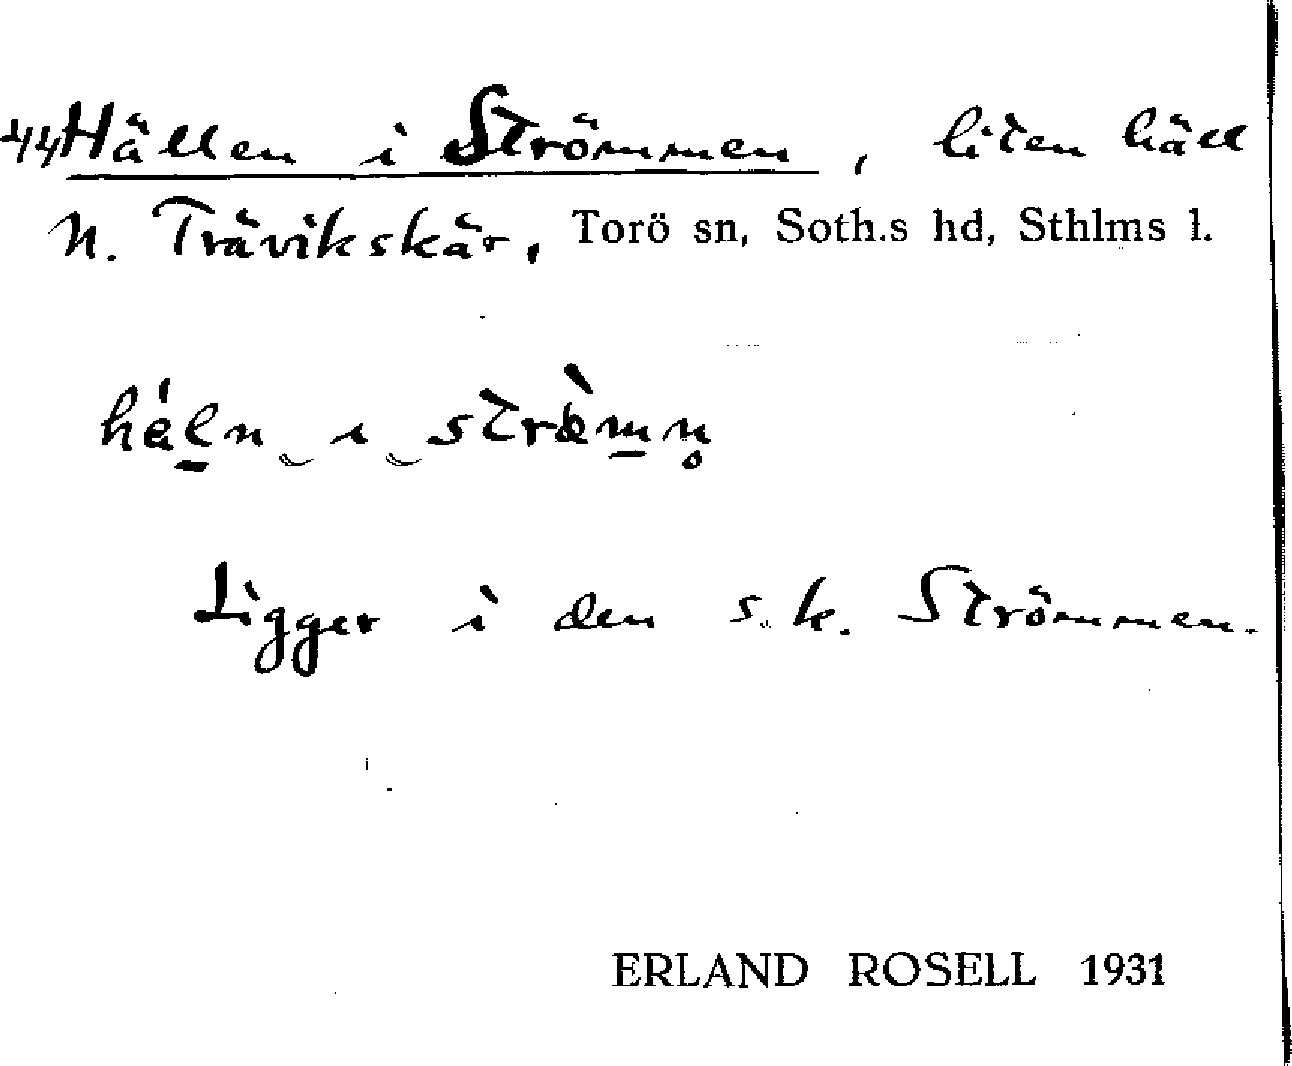 44 Hällen i Strömmen, liten häll
N. Trävikskär, Torö sn, Soth.s hd, Sthlms l.
Ligger i den s.k. Strömmen.
ERLAND ROSELL 1931